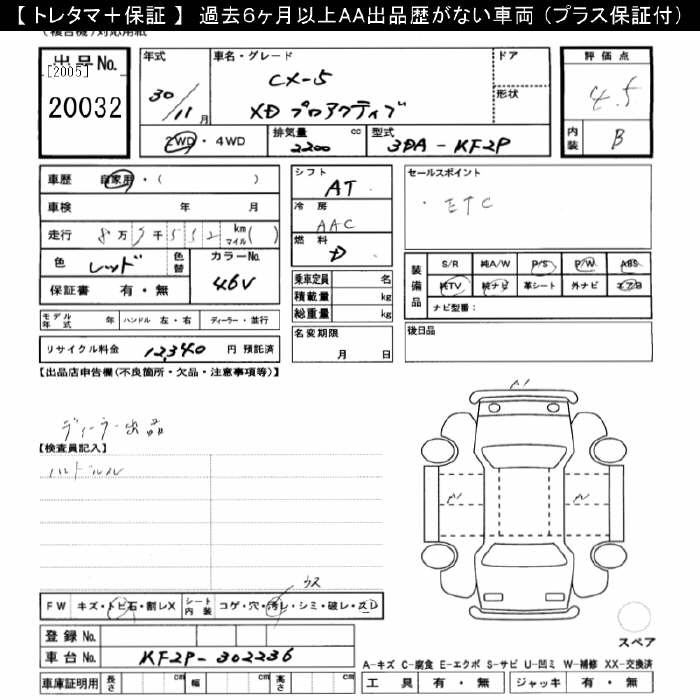 【 トレタマ＋保証 】 過去６ヶ月以上ＡＡ出品歴がない車両（プラス保証付）
(複合機)対応用紙
出品No.
[2005]
20032
年式
30/11月
車名・グレード
CX-5
XD プロアクティブ
ドア
形状
評価点
4.5
内装 B
2WD・4WD
排気量 2200 cc
型式 3DA-KF2P
車歴 自家用・( )
車検 年 月
走行 8万 千552 km マイル ( )
色 レッド 色替
カラーNo. 46V
保証書 有・無
シフト
AT
冷房
AAC
燃料
D
セールスポイント
・ETC
乗車定員 名
積載量 kg
総重量 kg
装備品
S/R 純A/W P/S P/W ABS
純TV 純ナビ 革シート 外ナビ エアB
ナビ型番：
モデル年式 年 ハンドル 左・右 ディーラー・並行
名変期限
月 日
後日品
リサイクル料金 12,340 円 預託済
【出品店申告欄(不良箇所・欠品・注意事項等)】
ディーラー出品
【検査員記入】
ハンドルスレ
A
A A
ウス
FW キズ・トビ石・割レX シート内装 コゲ・穴・汚レ・シミ・破レ・スレ
登録 No.
車台 No. KF2P-302236
スペア
A-キズ C-腐食 E-エクボ S-サビ U-凹ミ W-補修 XX-交換済
車庫証明用 長さ cm 幅 cm 高さ cm
工具 有・無 ジャッキ 有・無